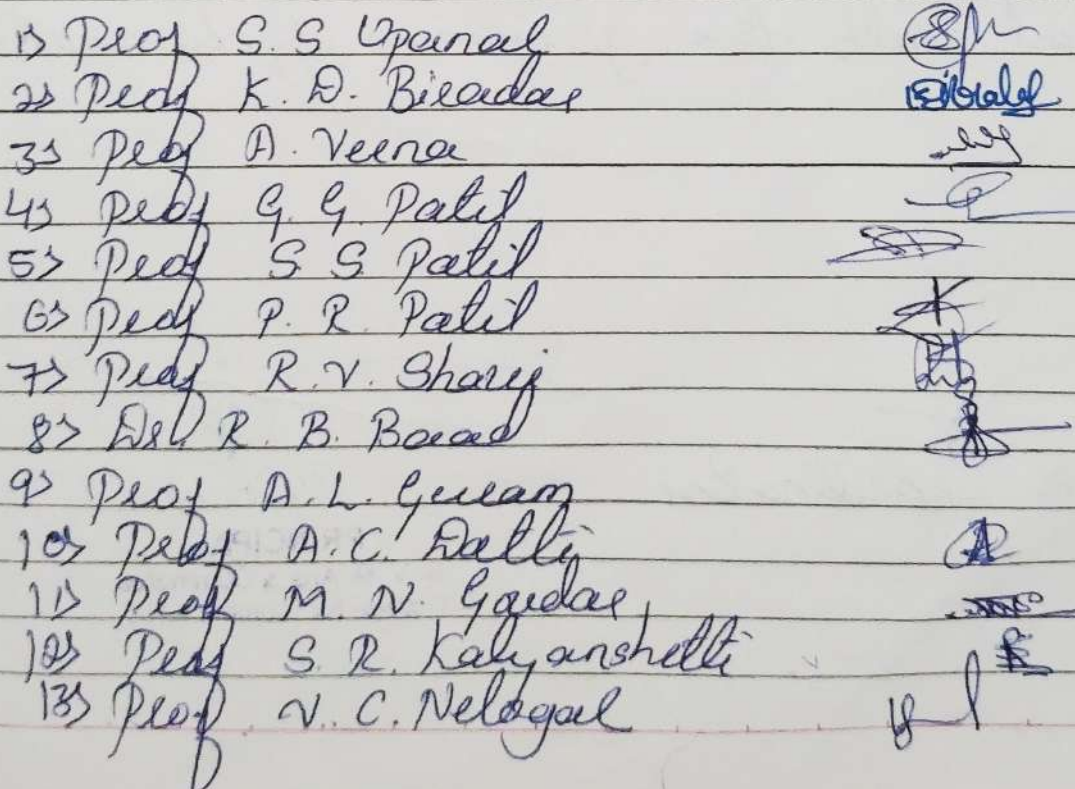 1) Prof S. S Upanal
2) Prof K. D. Biradar
3) Prof A. Veena
4) Prof G. G. Patil
5) Prof S S Patil
6) Prof P. R. Patil
7) Prof R. V. Sharij
8) Dr. R. B. Barad
9) Prof A. L. Guram
10) Prof A. C. Datti
11) Prof M. N. Gardar
12) Prof S. R. Kalyanshetti
13) Prof V. C. Nelogal